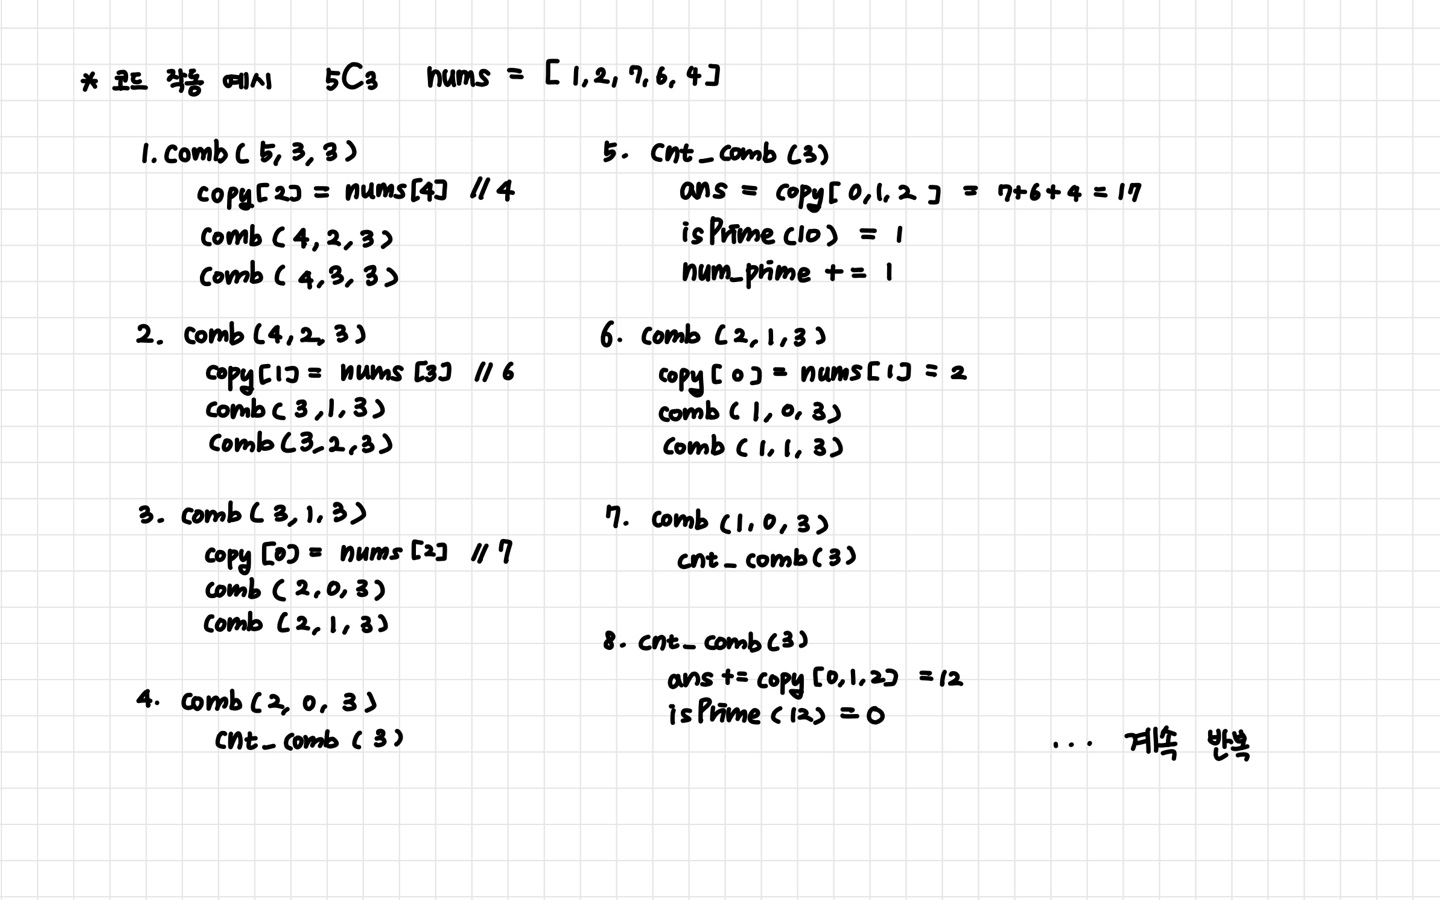 * 코드 작동 예시 5C3 nums = [1,2,7,6,4]
1. comb(5,3,3)
copy[2] = nums[4] //4
comb(4,2,3)
comb(4,3,3)
2. comb(4,2,3)
copy[1] = nums[3] //6
comb(3,1,3)
comb(3,2,3)
3. comb(3,1,3)
copy[0] = nums[2] //7
comb(2,0,3)
comb(2,1,3)
4. comb(2,0,3)
cnt_comb(3)
5. cnt_comb(3)
ans = copy[0,1,2] = 7+6+4=17
isPrime(10) = 1
num_prime += 1
6. comb(2,1,3)
copy[0] = nums[1] = 2
comb(1,0,3)
comb(1,1,3)
7. comb(1,0,3)
cnt_comb(3)
8. cnt_comb(3)
ans += copy[0,1,2] =12
isPrime(12) = 0
... 계속 반복